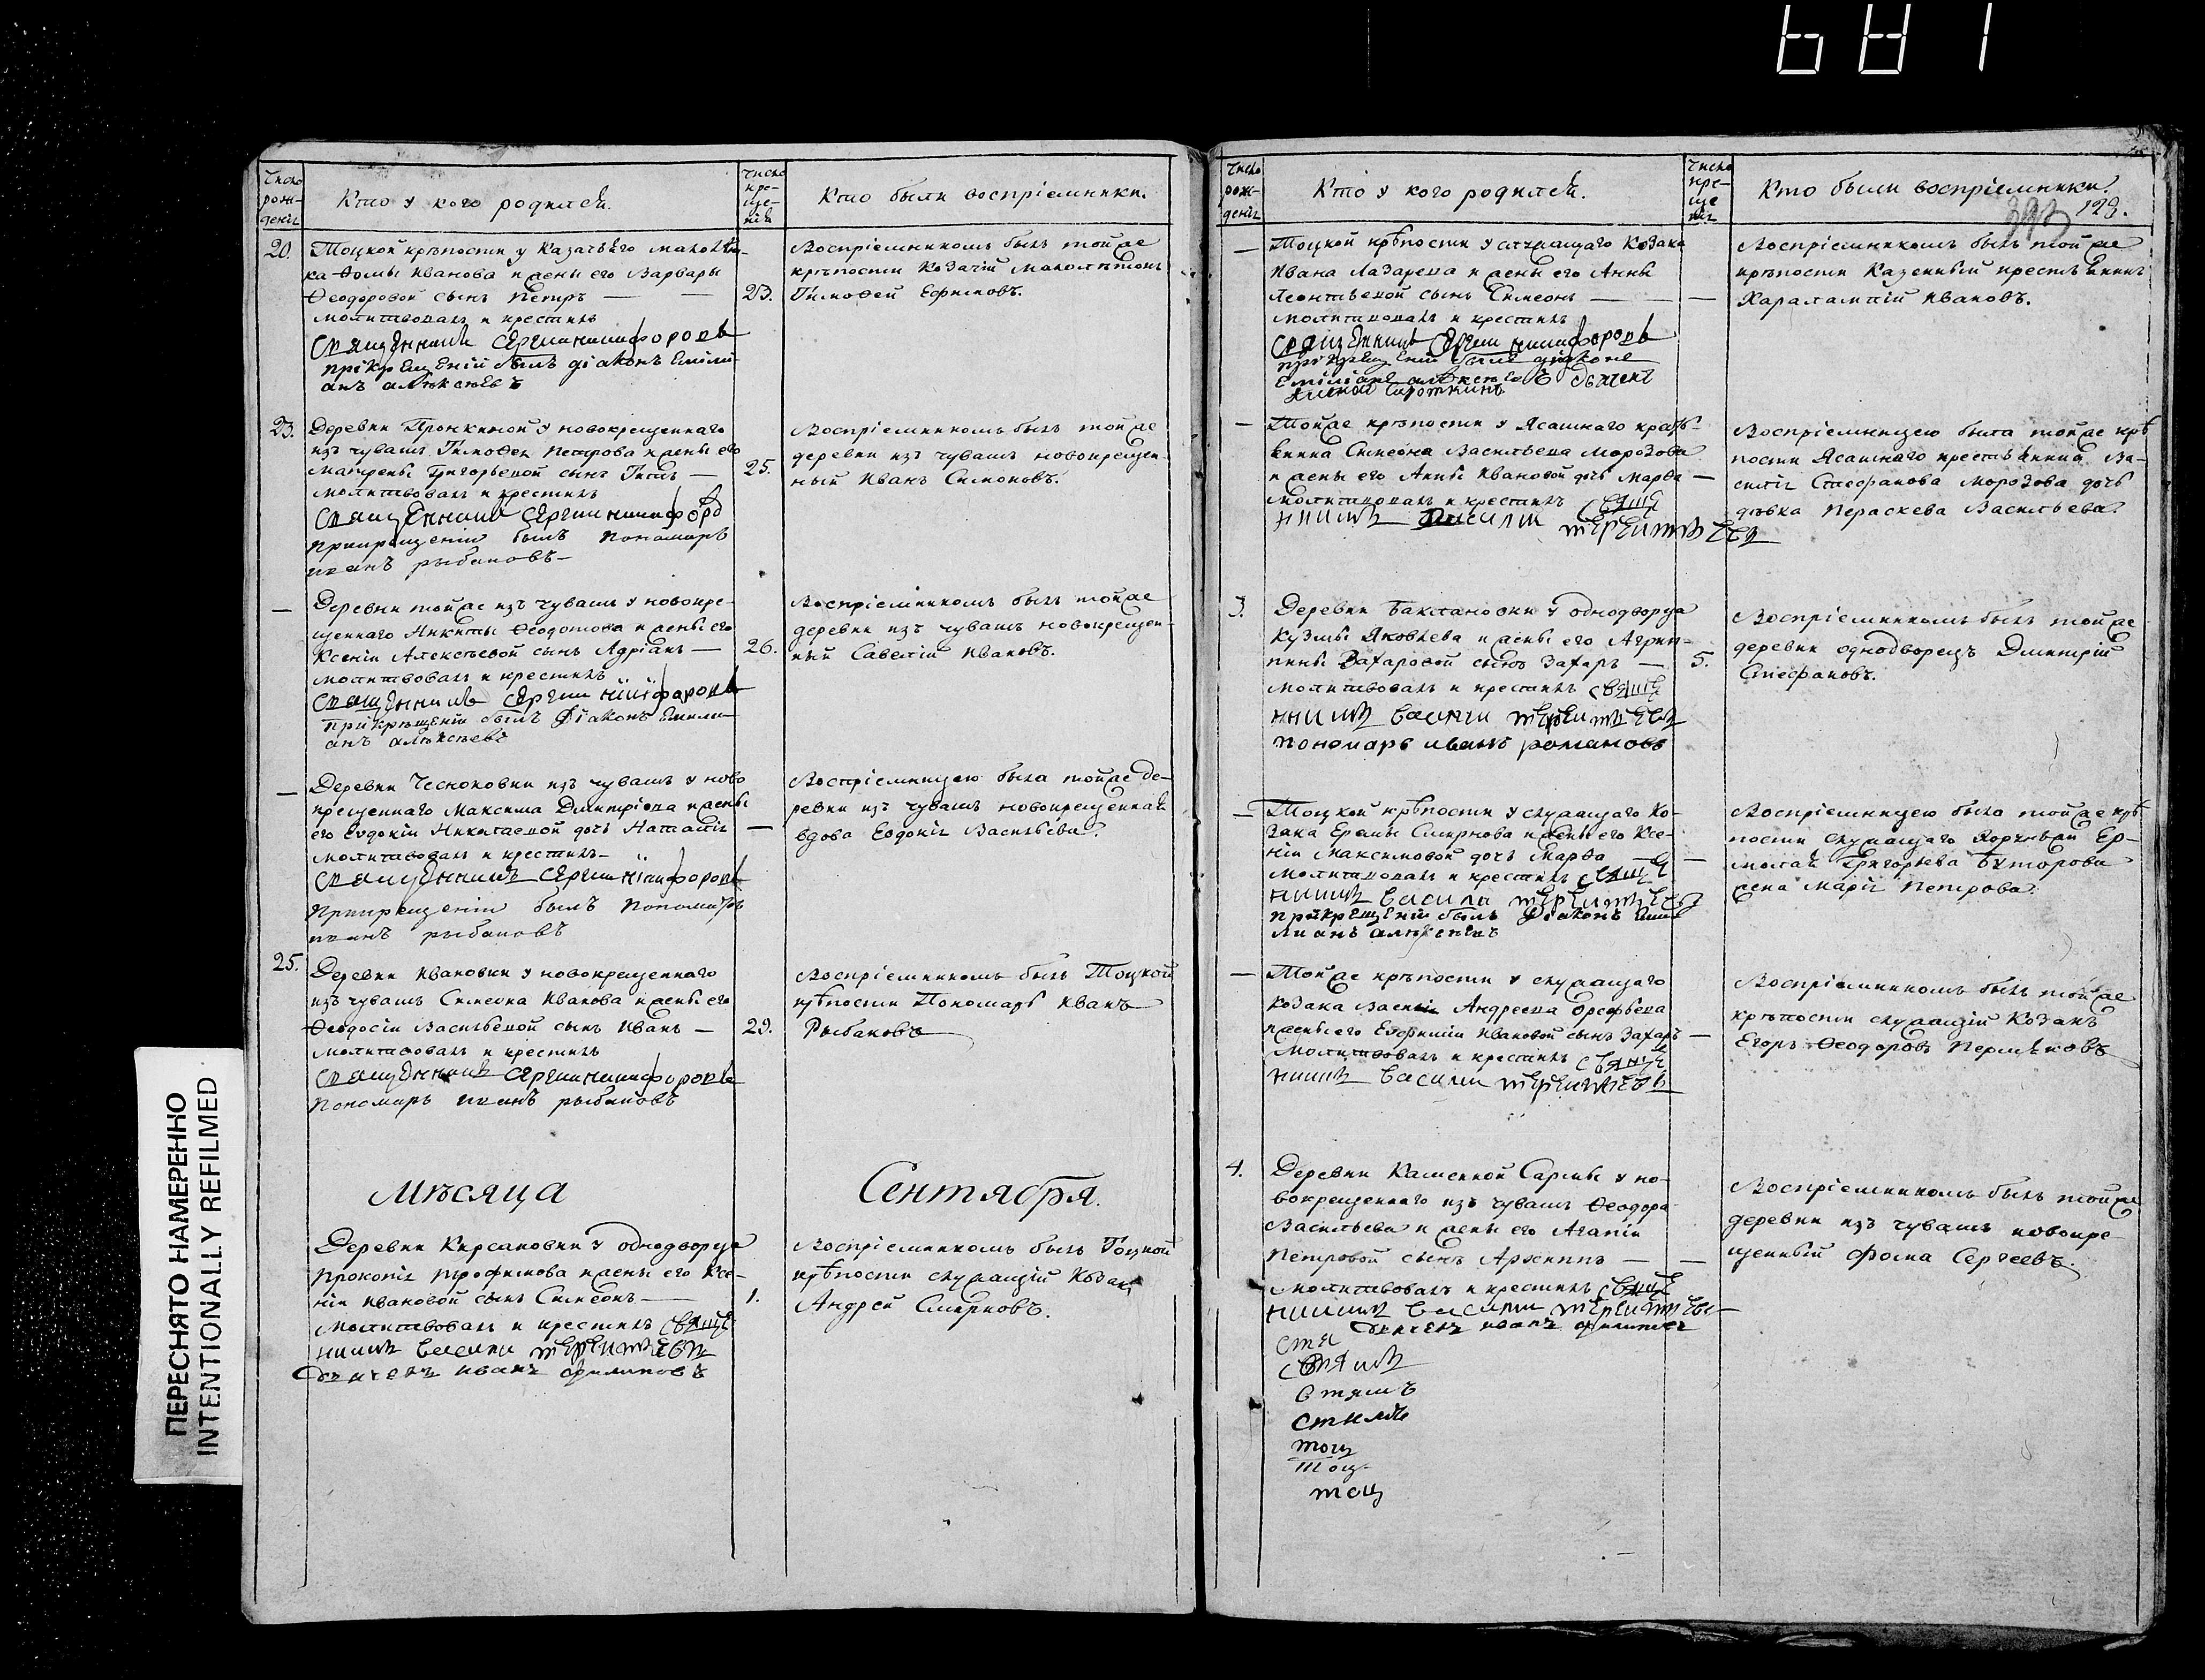 681
ПЕРЕСНЯТО НАМЕРЕННО
INTENTIONALLY REFILMED
Число рож-деніѧ
Кто у кого родилсѧ.
Число кре-ще-ній
Кто были воспріемники.
20.
Тоцкой крѣпости у Казачьѧго малолѣт-
ка Ѳомы Иванова и жены его Варвары
Ѳеодоровой сынъ Петръ —
23.
молитвовалъ и крестилъ
Священникъ Сергии никифоровъ
прікрещеніи былъ діаконъ Емили
анъ алѣксѣевъ
Воспріемникомъ былъ той же
крѣпости Козачій малолѣтокъ
Тимоѳей Ефимовъ.
23.
Деревни Пронкиной у новокрещеннаго
изъ чувашъ Тимоѳеѧ Петрова и жены его
Матрены Григорьевой сынъ Титъ —
25.
молитвовалъ и крестилъ
Священникъ Сергии никифоро
прикрещеніи былъ Пономарь
иванъ рыбаковъ
Воспріемникомъ былъ той же
деревни изъ чувашъ новокрещен-
ный Иванъ Симоновъ.
—
Деревни той же изъ чувашъ у новокре-
щеннаго Никиты Ѳеодотова и жены его
Ксеніи Алексѣевой сынъ Адріанъ —
26.
молитвовалъ и крестилъ
Священникъ Сергии никифоровъ
прикрѣщеніи былъ Діаконъ Емили
анъ алѣксѣевъ
Воспріемникомъ былъ той же
деревни изъ чувашъ новокрещен-
ный Савелій Ивановъ.
—
Деревни Чесноковки изъ чувашъ у ново
крещеннаго Максима Димитріева и жены
его Евдокіи Николаевой дочь Наталіѧ —
молитвовалъ и крестилъ
Священникъ Сергии никифоровъ
Прикрещеніи былъ Пономарь
иванъ рыбаковъ
Воспріемницею была той же де-
ревни изъ чувашъ новокрещеннаѧ
вдова Евдокіѧ Васильева.
25.
Деревни Ивановки у новокрещеннаго
изъ чувашъ Симеона Иванова и жены его
Ѳеодосіи Васильевой сынъ Иванъ —
29.
молитвовалъ и крестилъ
Священникъ Сергии никифоровъ
Пономарь иванъ рыбаковъ
Воспріемникомъ былъ Тоцкой
крѣпости Пономарь Иванъ
Рыбаковъ
Мѣсяца
Сентября.
Деревни Кирсановки у однодворца
Прокопіѧ Трофимова и жены его Ксе-
ніи Ивановой сынъ Симеонъ —
1.
молитвовалъ и крестилъ свяще
нникъ василии терентьевъ
дьячекъ иванъ филиповъ
Воспріемникомъ былъ Тоцкой
крѣпости служащій Козакъ
Андрей Смирновъ.
Число рож-деніѧ
Кто у кого родилсѧ.
Число кре-ще ніѧ
Кто были воспріемники.
393
129.
—
Тоцкой крѣпости у служащаго Козака
Ивана Лазарева и жены его Анны
Леонтьевой сынъ Симеонъ —
молитвовалъ и крестилъ
Священникъ Сергии никифоровъ
прікрещеніи былъ діяконъ
Еміліанъ алѣксѣевъ дьячекъ
Воспріемникомъ былъ той же
крѣпости Казенный крестьѧнинъ
Харалампій Ивановъ.
—
Той же крѣпости у Ясашнаго крестьѧ-
нина Симеона Васильева Морозова
и жены его Анны Ивановой дочь Марѳа —
молитвовалъ и крестилъ свяще
нникъ василии терентьевъ
Воспріемницею была той же крѣ
пости Ясашнаго крестьѧнина Ва-
силіѧ Стефанова Морозова дочь
дѣвка Параскева Васильева.
3.
Деревни Баклановки у однодворца
Кузмы Яковлева и жены его Агрип-
пины Захаровой сынъ Захаръ —
5.
молитвовалъ и крестилъ свяще
нникъ василии терентьевъ
пономарь иванъ романовъ
Воспріемникомъ былъ той же
деревни однодворецъ Димитрій
Стефановъ.
—
Тоцкой крѣпости у служащаго Ко-
зака Еремы Смирнова и жены его Ксе-
ніи Максимовой дочь Марѳа —
молитвовалъ и крестилъ свяще
нникъ василии терентьевъ
прикрещеніи былъ Діаконъ Еми
лианъ алѣксѣевъ
Воспріемницею была той же крѣ
пости служащаго Ер-
молаѧ Григорьева Буторова
жена Маріѧ Петрова.
—
Той же крѣпости у служащаго
козака Василіѧ Андреева Орефьева
и жены его Евфиміи Ивановой сынъ Захаръ —
молитвовалъ и крестилъ свяще
нникъ василии терентьевъ
Воспріемникомъ былъ той же
крѣпости служащій Козакъ
Егоръ Ѳеодоровъ Пермѧковъ
4.
Деревни Каменной Сармы у но-
вокрещеннаго изъ чувашъ Ѳеодора
Васильева и жены его Агапіи
Петровой сынъ Архиппъ —
молитвовалъ и крестилъ свяще
нникъ василии терентьевъ
дьячекъ иванъ филиповъ
Воспріемникомъ былъ той же
деревни изъ чувашъ новокре-
щенный Фома Сергеевъ.
стя
тоц
тоц
тоц